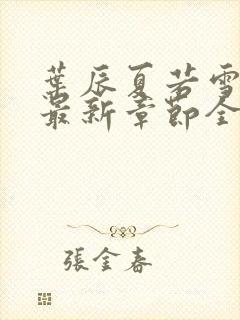 葉辰夏若雪
最新章節全
張金春